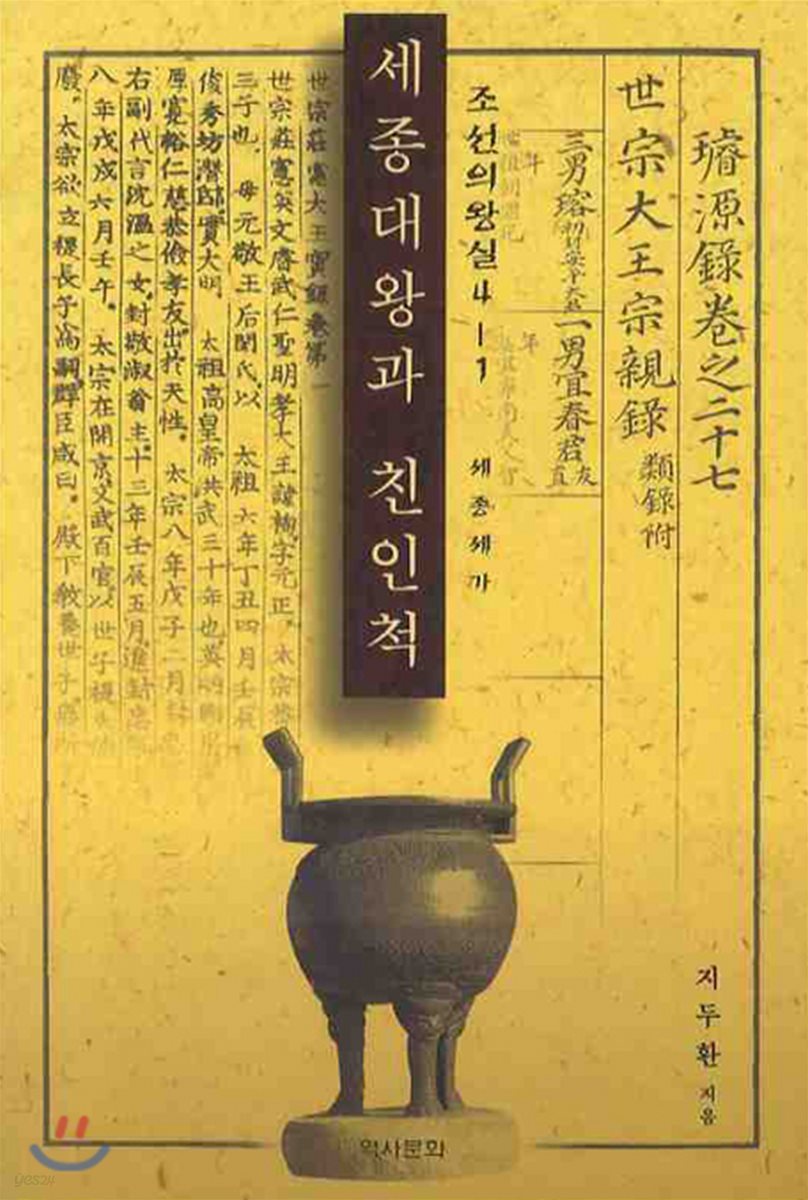 璿源錄卷之二十七
世宗大王宗親錄 類錄附
三男瑢 初封安平大君
一男宜春君友直
年
年
조선의왕실4-1 세종세가
세종대왕과 친인척
世宗莊憲大王實錄卷第一
世宗莊憲英文睿武仁聖明孝大王諱祹字元正。太宗
三子也。母元敬王后閔氏。以 太祖六年丁丑四月壬辰
俊秀坊潛邸。實大明。太祖高皇帝洪武三十年也。英明剛
厚寬裕仁慈恭儉孝友。出於天性。太宗八年戊子二月封
右副代言沈溫之女。封敬淑翁主。十三年壬辰五月。進封忠
八年戊戌六月壬午。太宗在開京。文武百官。以世子禔
廢。太宗欲立禔長子爲嗣。群臣咸曰。殿下敎養世子
지두환 지음
역사문화
yes24